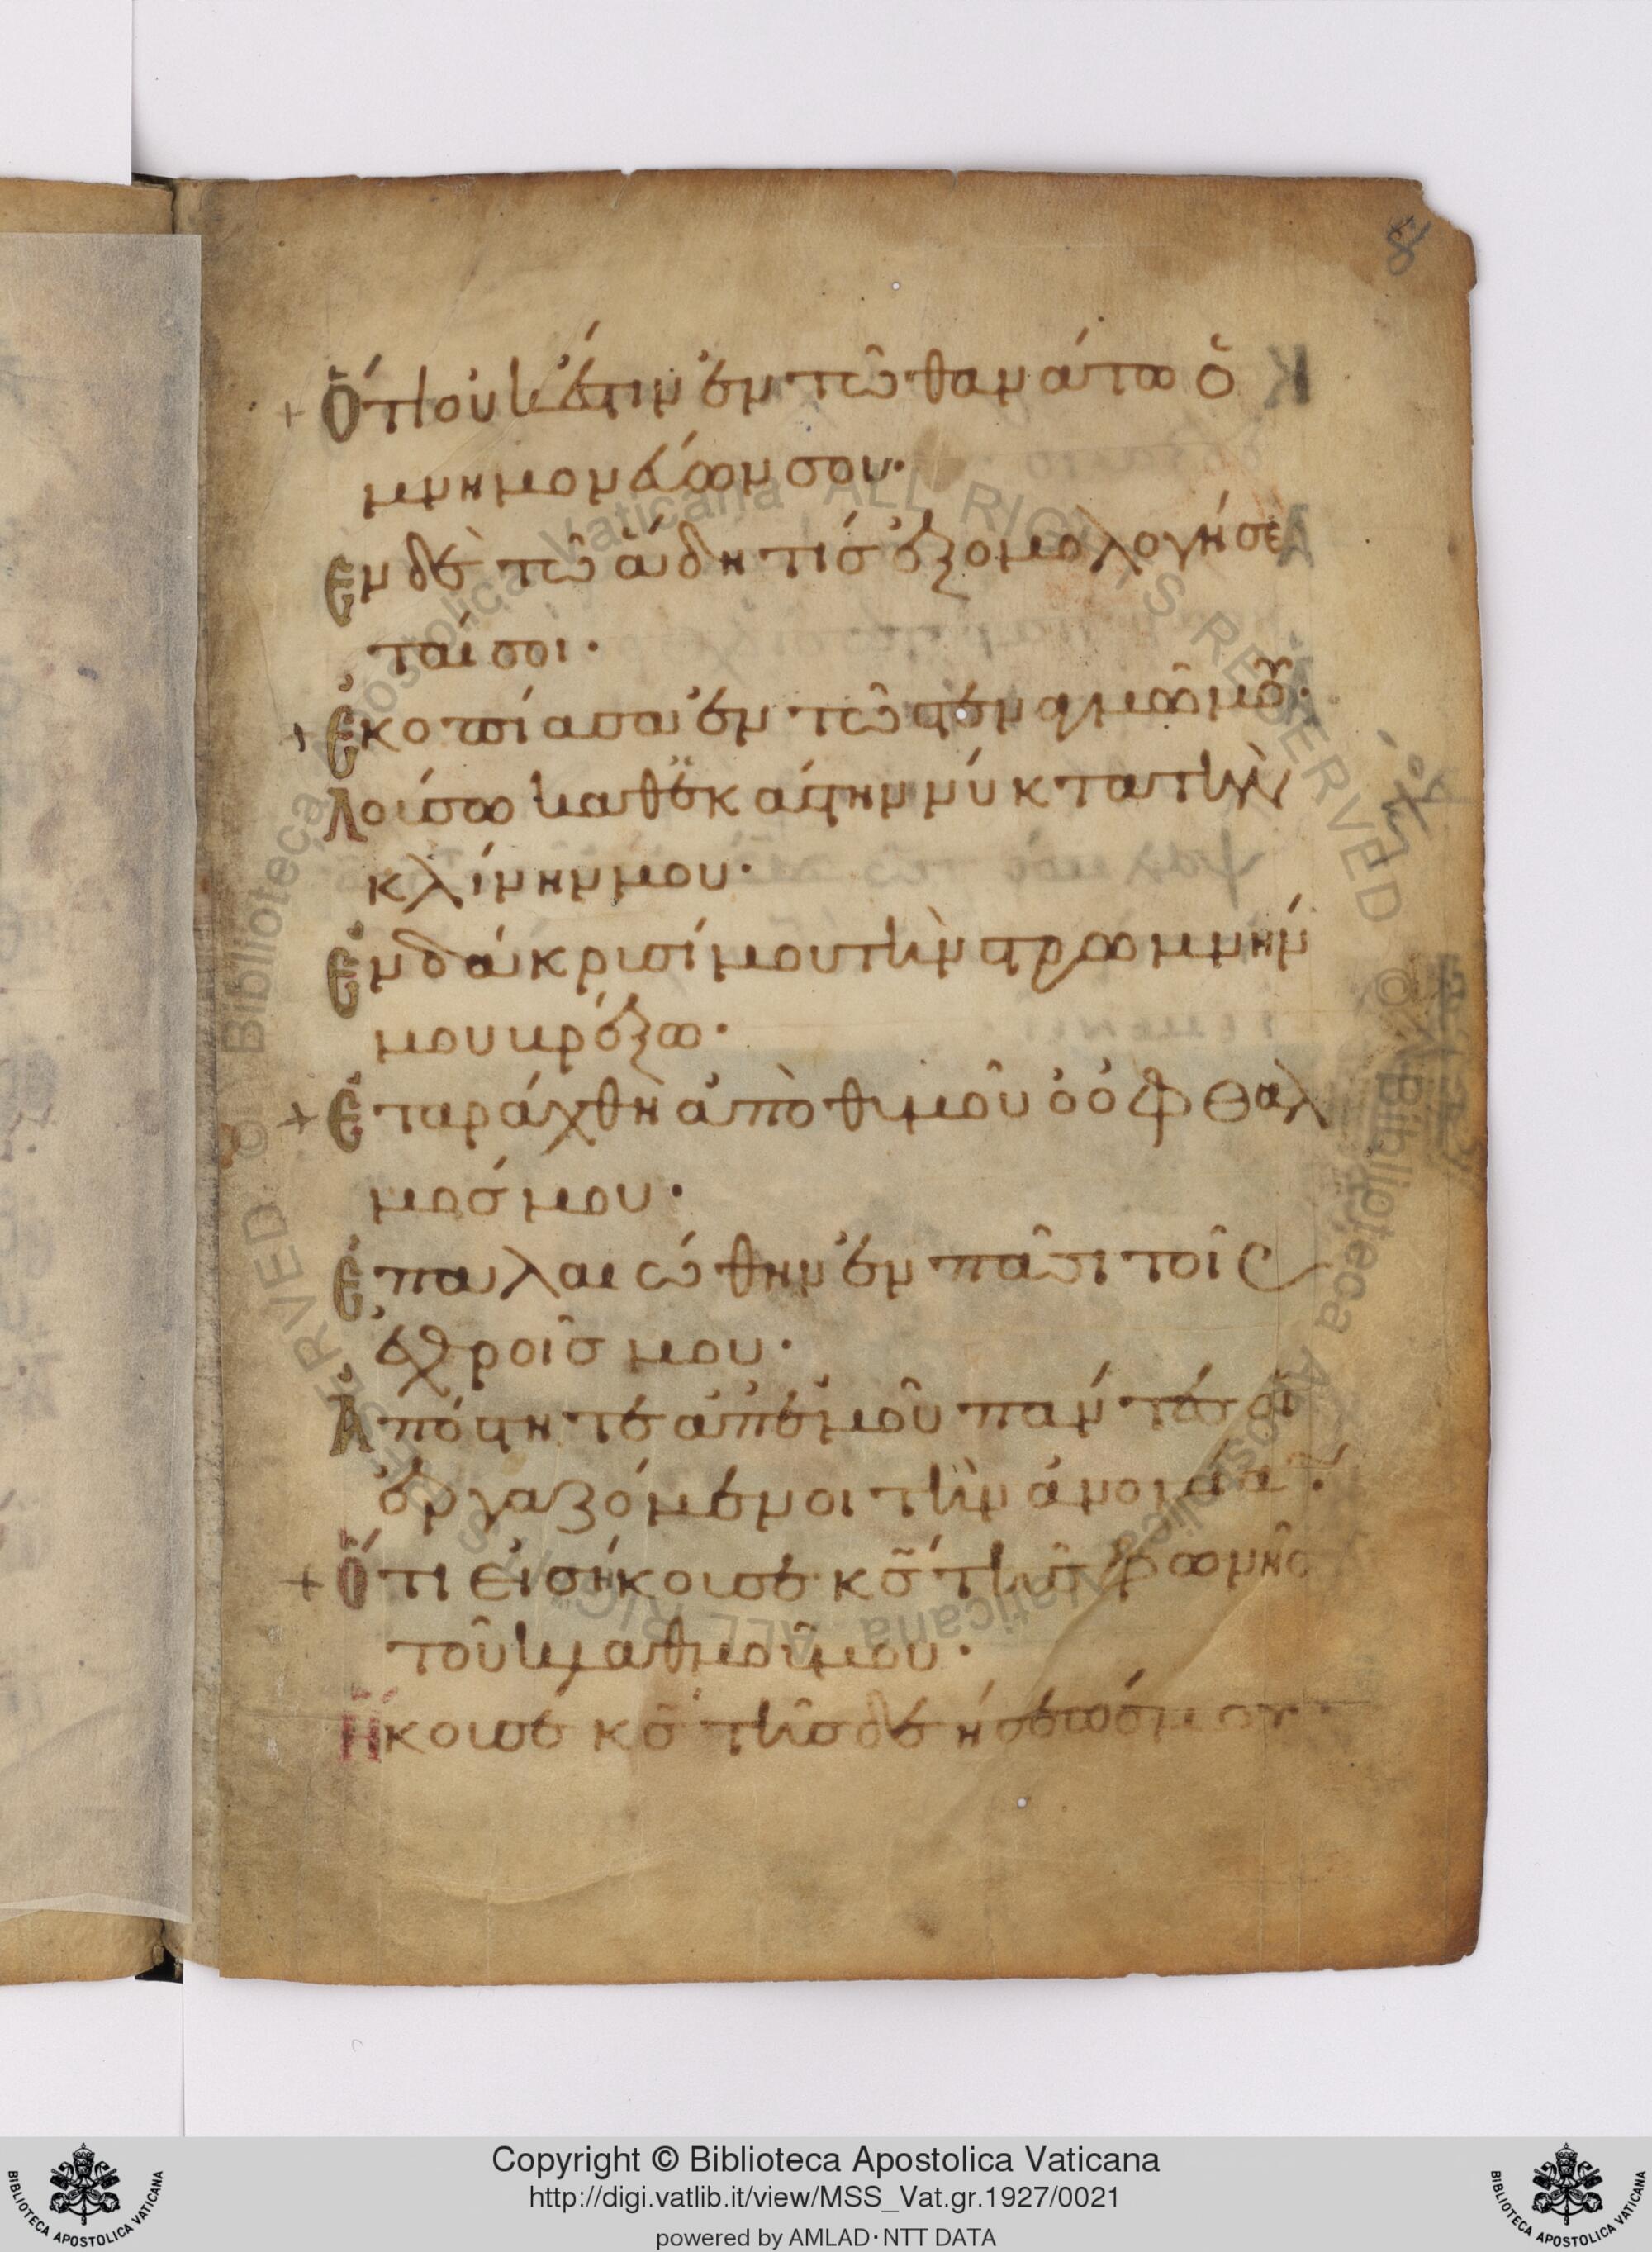 8
+ Ὅτι οὐκ ἔστιν ἐν τῶ θανάτω ὁ
μνημονεύων σου·
Εν δὲ τῶ ἅδη τίς ἐξομολογήσε
ταί σοι·
+ Ἐκοπίασα ἐν τῶ στεναγμῶ μου·
Λούσω καθ ἑκάστην νύκτα τὴν
κλίνην μου·
Ἐν δάκρυσί μου τὴν στρωμνήν
μου βρέξω·
+ Ἐταράχθη ἀπὸ θυμοῦ ὁ ὀφθαλ
μός μου·
Ἐπαλαιώθην ἐν πᾶσι τοῖς
ἐχθροῖς μου·
Ἀπόστητε ἀπ ἐμοῦ πάντες οἱ
ἐργαζόμενοι τὴν ἀνομίαν·
+ Ὅτι εἰσήκουσε κς τῆς φωνῆς
τοῦ κλαυθμοῦ μου·
Ἤκουσε κς τῆς δεήσεώς μου·
Copyright © Biblioteca Apostolica Vaticana
http://digi.vatlib.it/view/MSS_Vat.gr.1927/0021
powered by AMLAD·NTT DATA
BIBLIOTECA APOSTOLICA VATICANA
BIBLIOTECA APOSTOLICA VATICANA